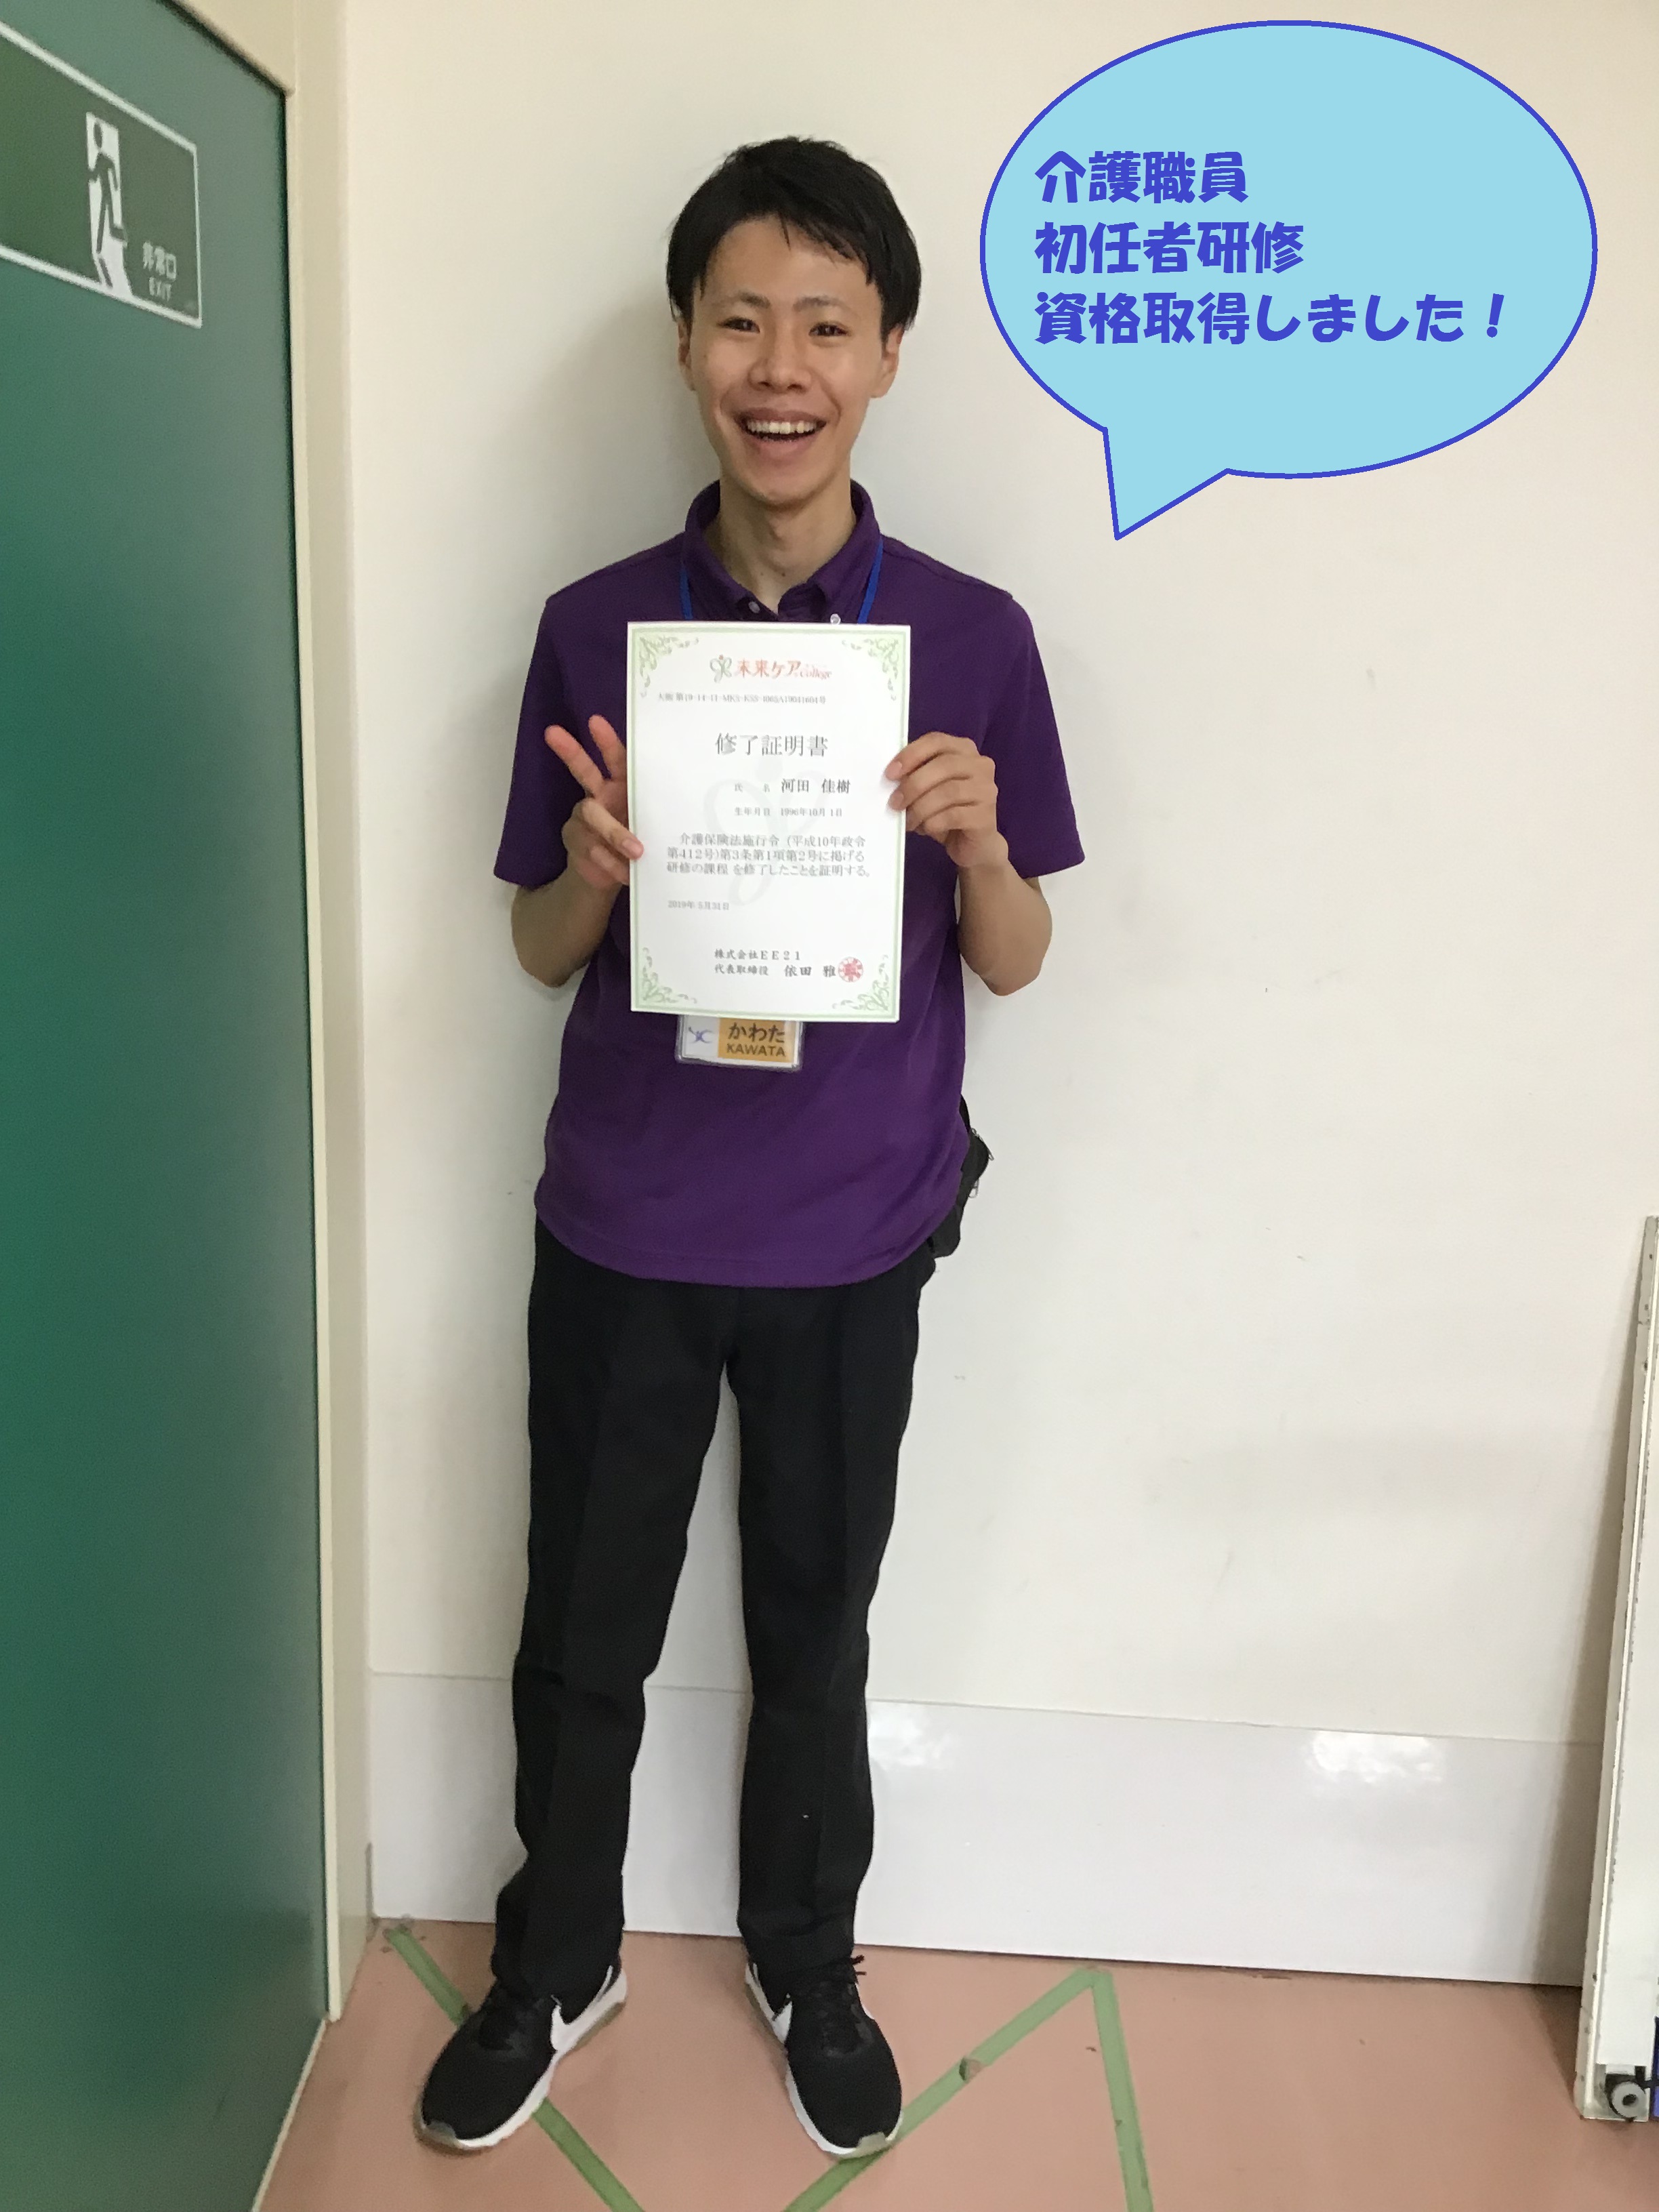 非常口
EXIT
介護職員
初任者研修
資格取得しました！
未来ケアcollege
修了証明書
氏 名 河田 佳樹
生年月日 1996年10月1日
介護保険法施行令（平成10年政令
第412号)第3条第1項第2号に掲げる
研修の課程 を修了したことを証明する。
2019年 5月31日
株式会社ＥＥ２１
代表取締役 依田 雅
かわた
KAWATA